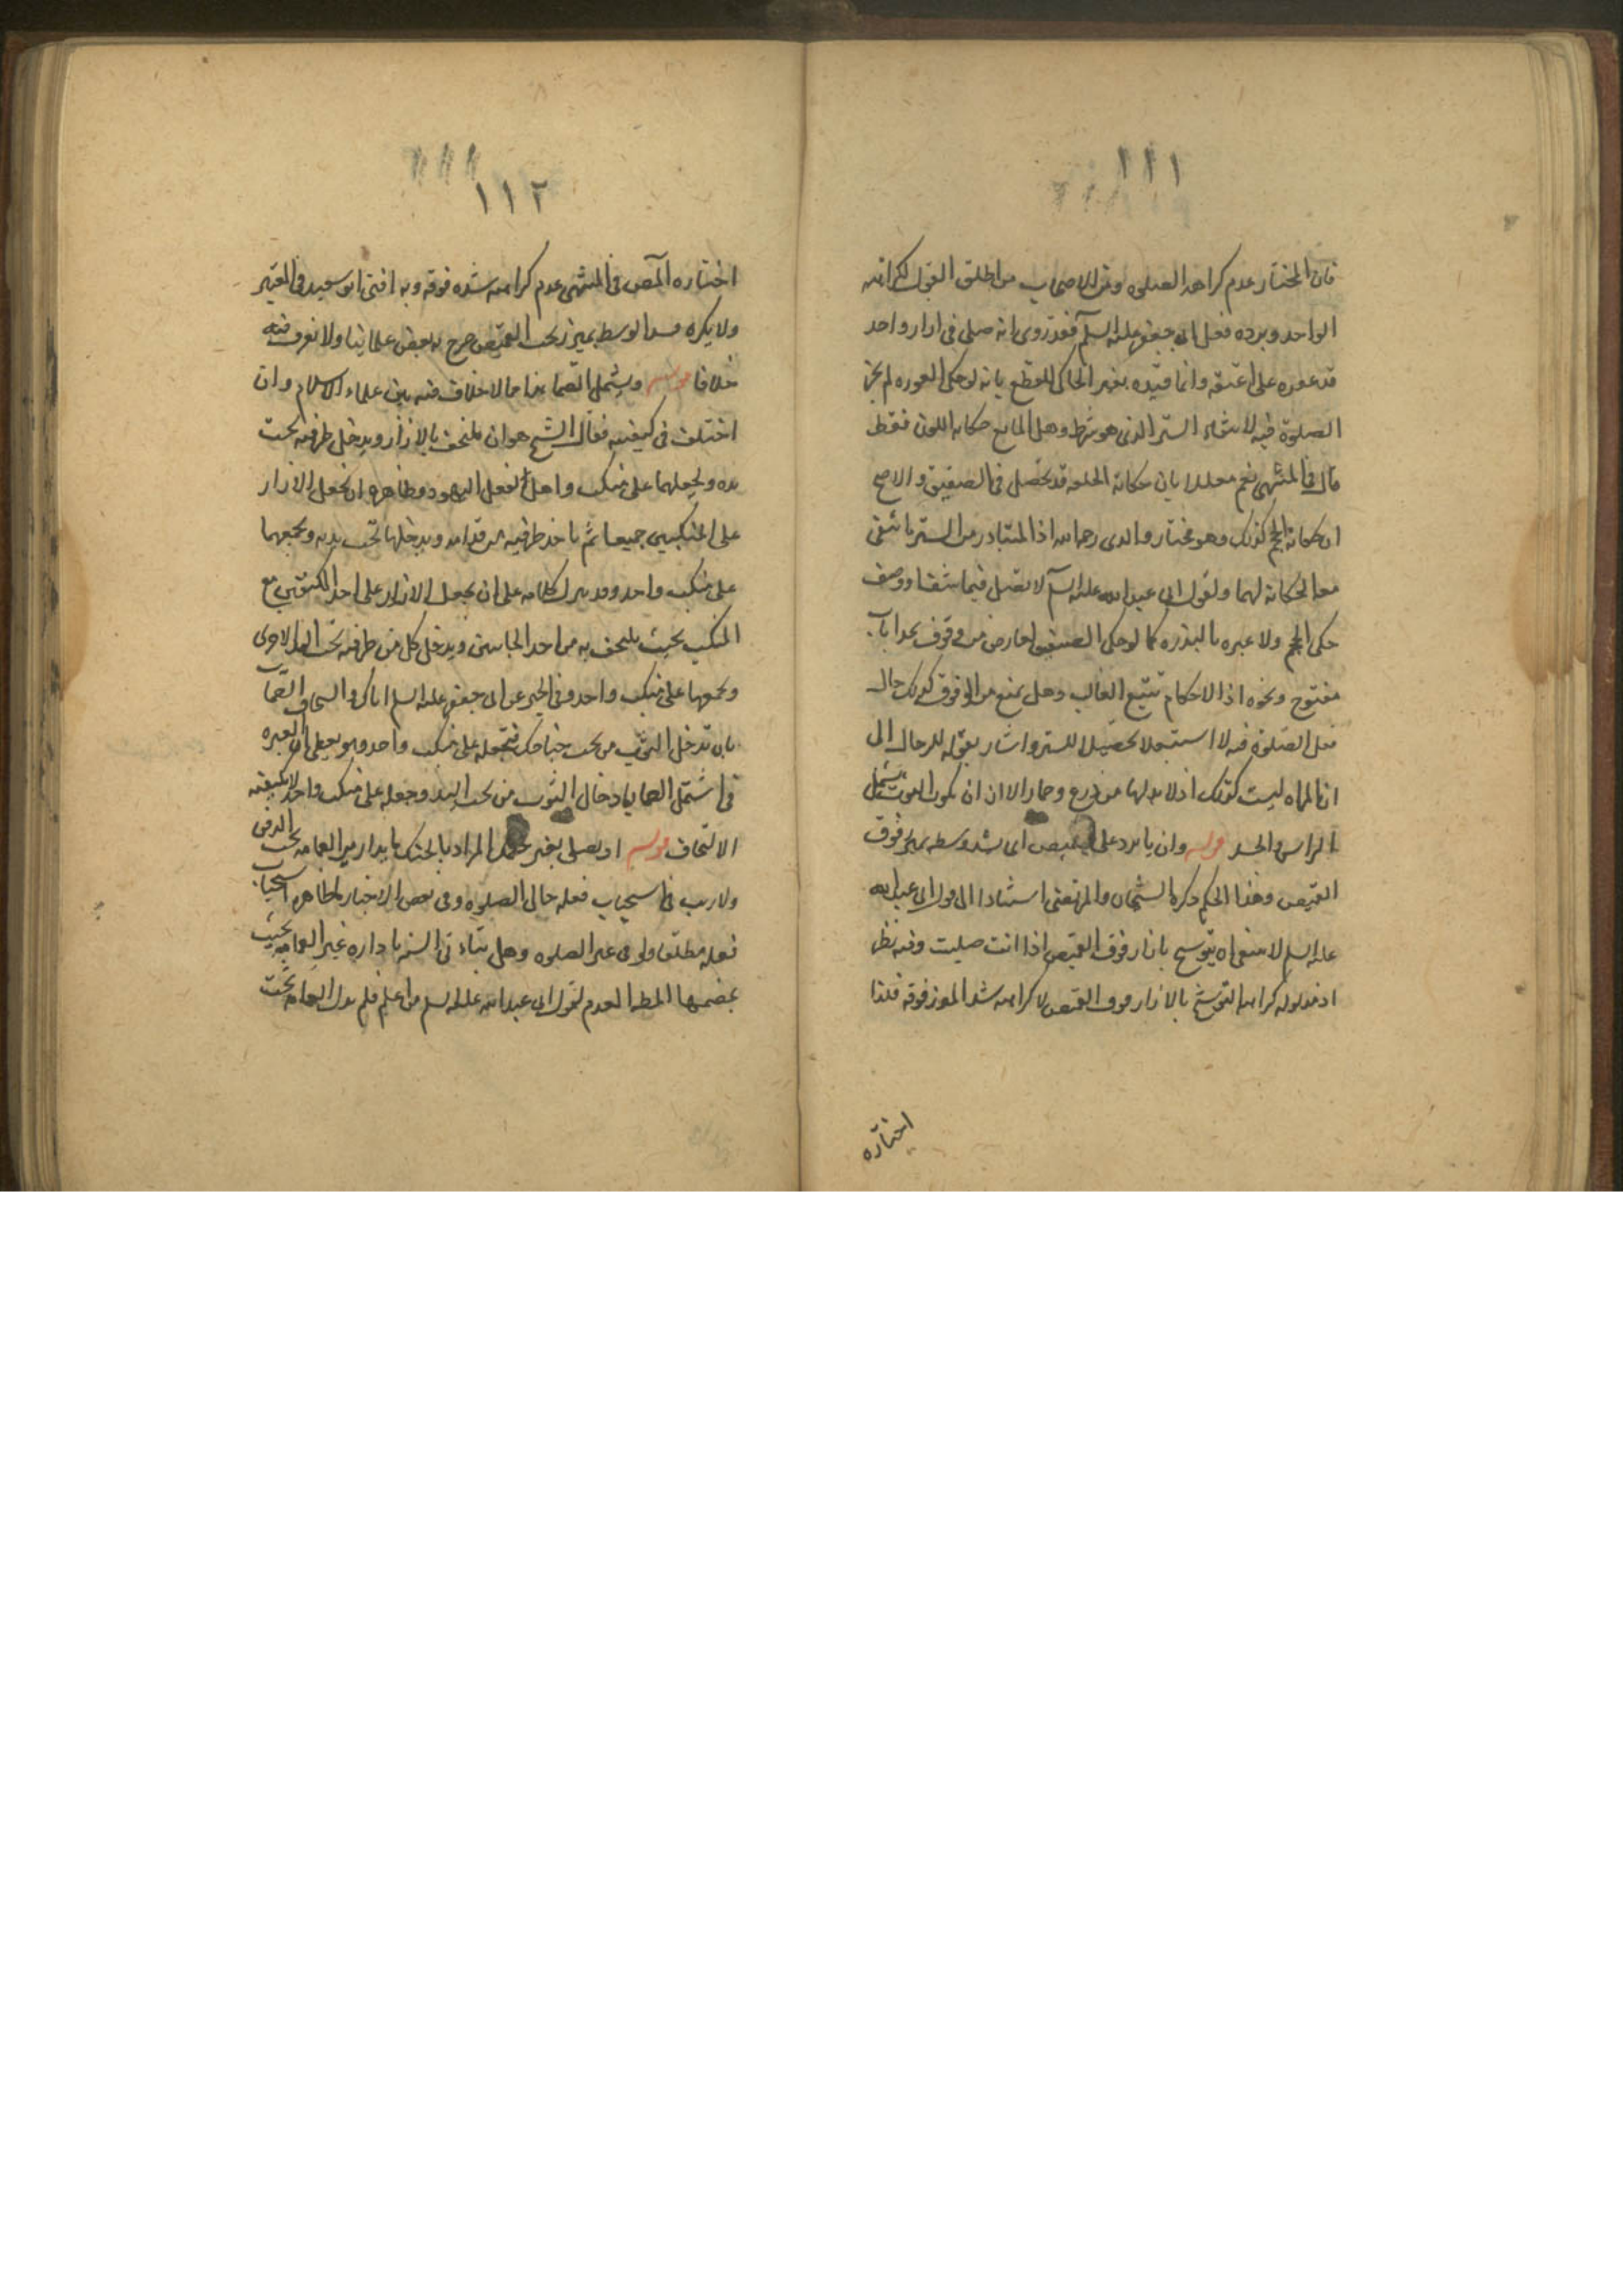 ١١١
فان المختار عدم كراهه الصلوه ومن الاصحاب من اطلق القول لكراهه
الواحد ويرده فعل ابى جعفر عليه السلم فقد روى انه صلى فى ازار واحد
قد عقده على عنقه وانما قيده بغير الحاكى للقطع بانه لو حكى العوره لم يجز
الصلوة فيه لانتفاء الستر الذى هو شرط وهل المانع حكايه اللون فقط
قال فى المنتهى نعم معللا بان حكاية الخلقه قد يحصل فى الصفيق والاصح
ان حكاية الحجم كذلك وهو مختار والدى رحمه الله اذ المتبادر من الستر ما ينتفى
معه الحكاية لهما ولقول ابى عبد الله عليه السلم لا تصل فيما شف او وصف
حكى الحجم ولا عبره بالبذره كما لو حكى الصفيق لعارض من وقوف بحذا باب
مفتوح ونحوه اذ الاحكام تتبع الغالب وهل يمنع من الوقوف كذلك حال
فعل الصلوة فيه لا استبعد لا تحصيلا للستر واشار بقوله للرجال الى
ان المراه ليست كذلك اذ لا بد لها من درع وخمار الا ان يكون الثوب يشمل
الراس والجسد قوله وان ياتزر على القميص اى يشد وسطه بميزر فوق
القميص وهذا الحكم ذكره الشيخان والمرتضى استنادا الى قول ابى عبد الله
عليه السلم لا ينبغى ان يتوشح بازار فوق القميص اذا انت صليت وفيه نظر
اذ مدلوله كراهه التوشح بالازار فوق القميص لا كراهه شد الميزر فوقه فلذا
اختاره
١١٢
اختاره المص فى المنتهى عدم كراهه شده فوقه وبه افتى ابو سعيد فى المعتبر
ولا يكره شد الوسط بميزر تحت القميص صرح به بعض علمائنا ولا نعرف فيه
خلافا قوله ويشتمل الصما هذا مما لا خلاف فيه بين علماء الاسلام وان
اختلف فى كيفيته فقال الشيخ هو ان يلتحف بالازار ويدخل طرفيه تحت
يده ويجعلهما على منكب واحد كفعل اليهود وظاهره ان يجعل الازار
على المنكبين جميعا ثم ياخذ طرفيه من قدامه ويدخلهما تحت يديه ويجمعهما
على منكب واحد وقد ينزل كلامه على ان يجعل الازار على احد الكتفين مع
المنكب بحيث يلتحف به من احد الجانبين ويدخل كل من طرفيه تحت اليد الاخرى
ويجمعهما على منكب واحد وفى الخبر عن ابى جعفر عليه السلم اياك والتحاف الصماء
بان تدخل الثوب من تحت جناحك فتجعله على منكب واحد وهو يعطى ان العبره
فى اشتمال الصما بادخال الثوب من تحت اليد وجعله على منكب واحد لا بكيفية
الالتحاف قوله او يصلى بغير حنك المراد بالحنك ما يدار من العمامه تحت الذقن
ولا ريب فى استحباب فعله حال الصلوه وفى بعض الاخبار ما ظاهره استحباب
فعله مطلقا ولو فى غير الصلوه وهل يتادى السنه بادارة غير العمامه بحيث
يضمها المط العدم لقول ابى عبد الله عليه السلم من اعتم فلم يدر العمامه تحت